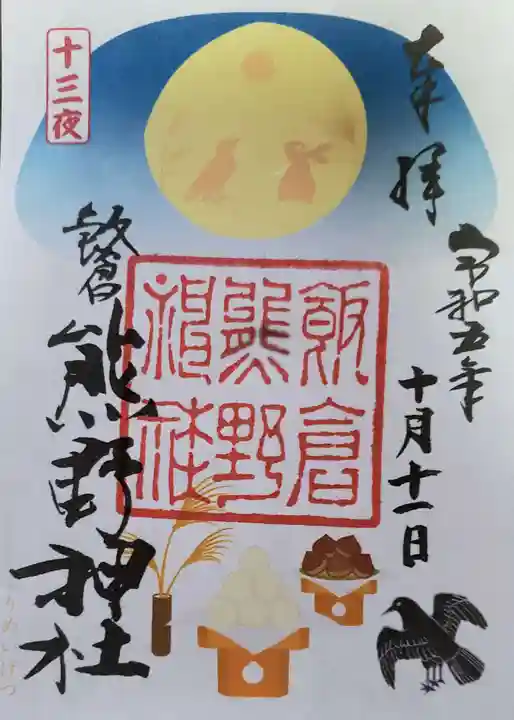 奉拝
令和五年
十月十一日
飯倉
熊野
神社
十三夜
飯倉
熊野神社